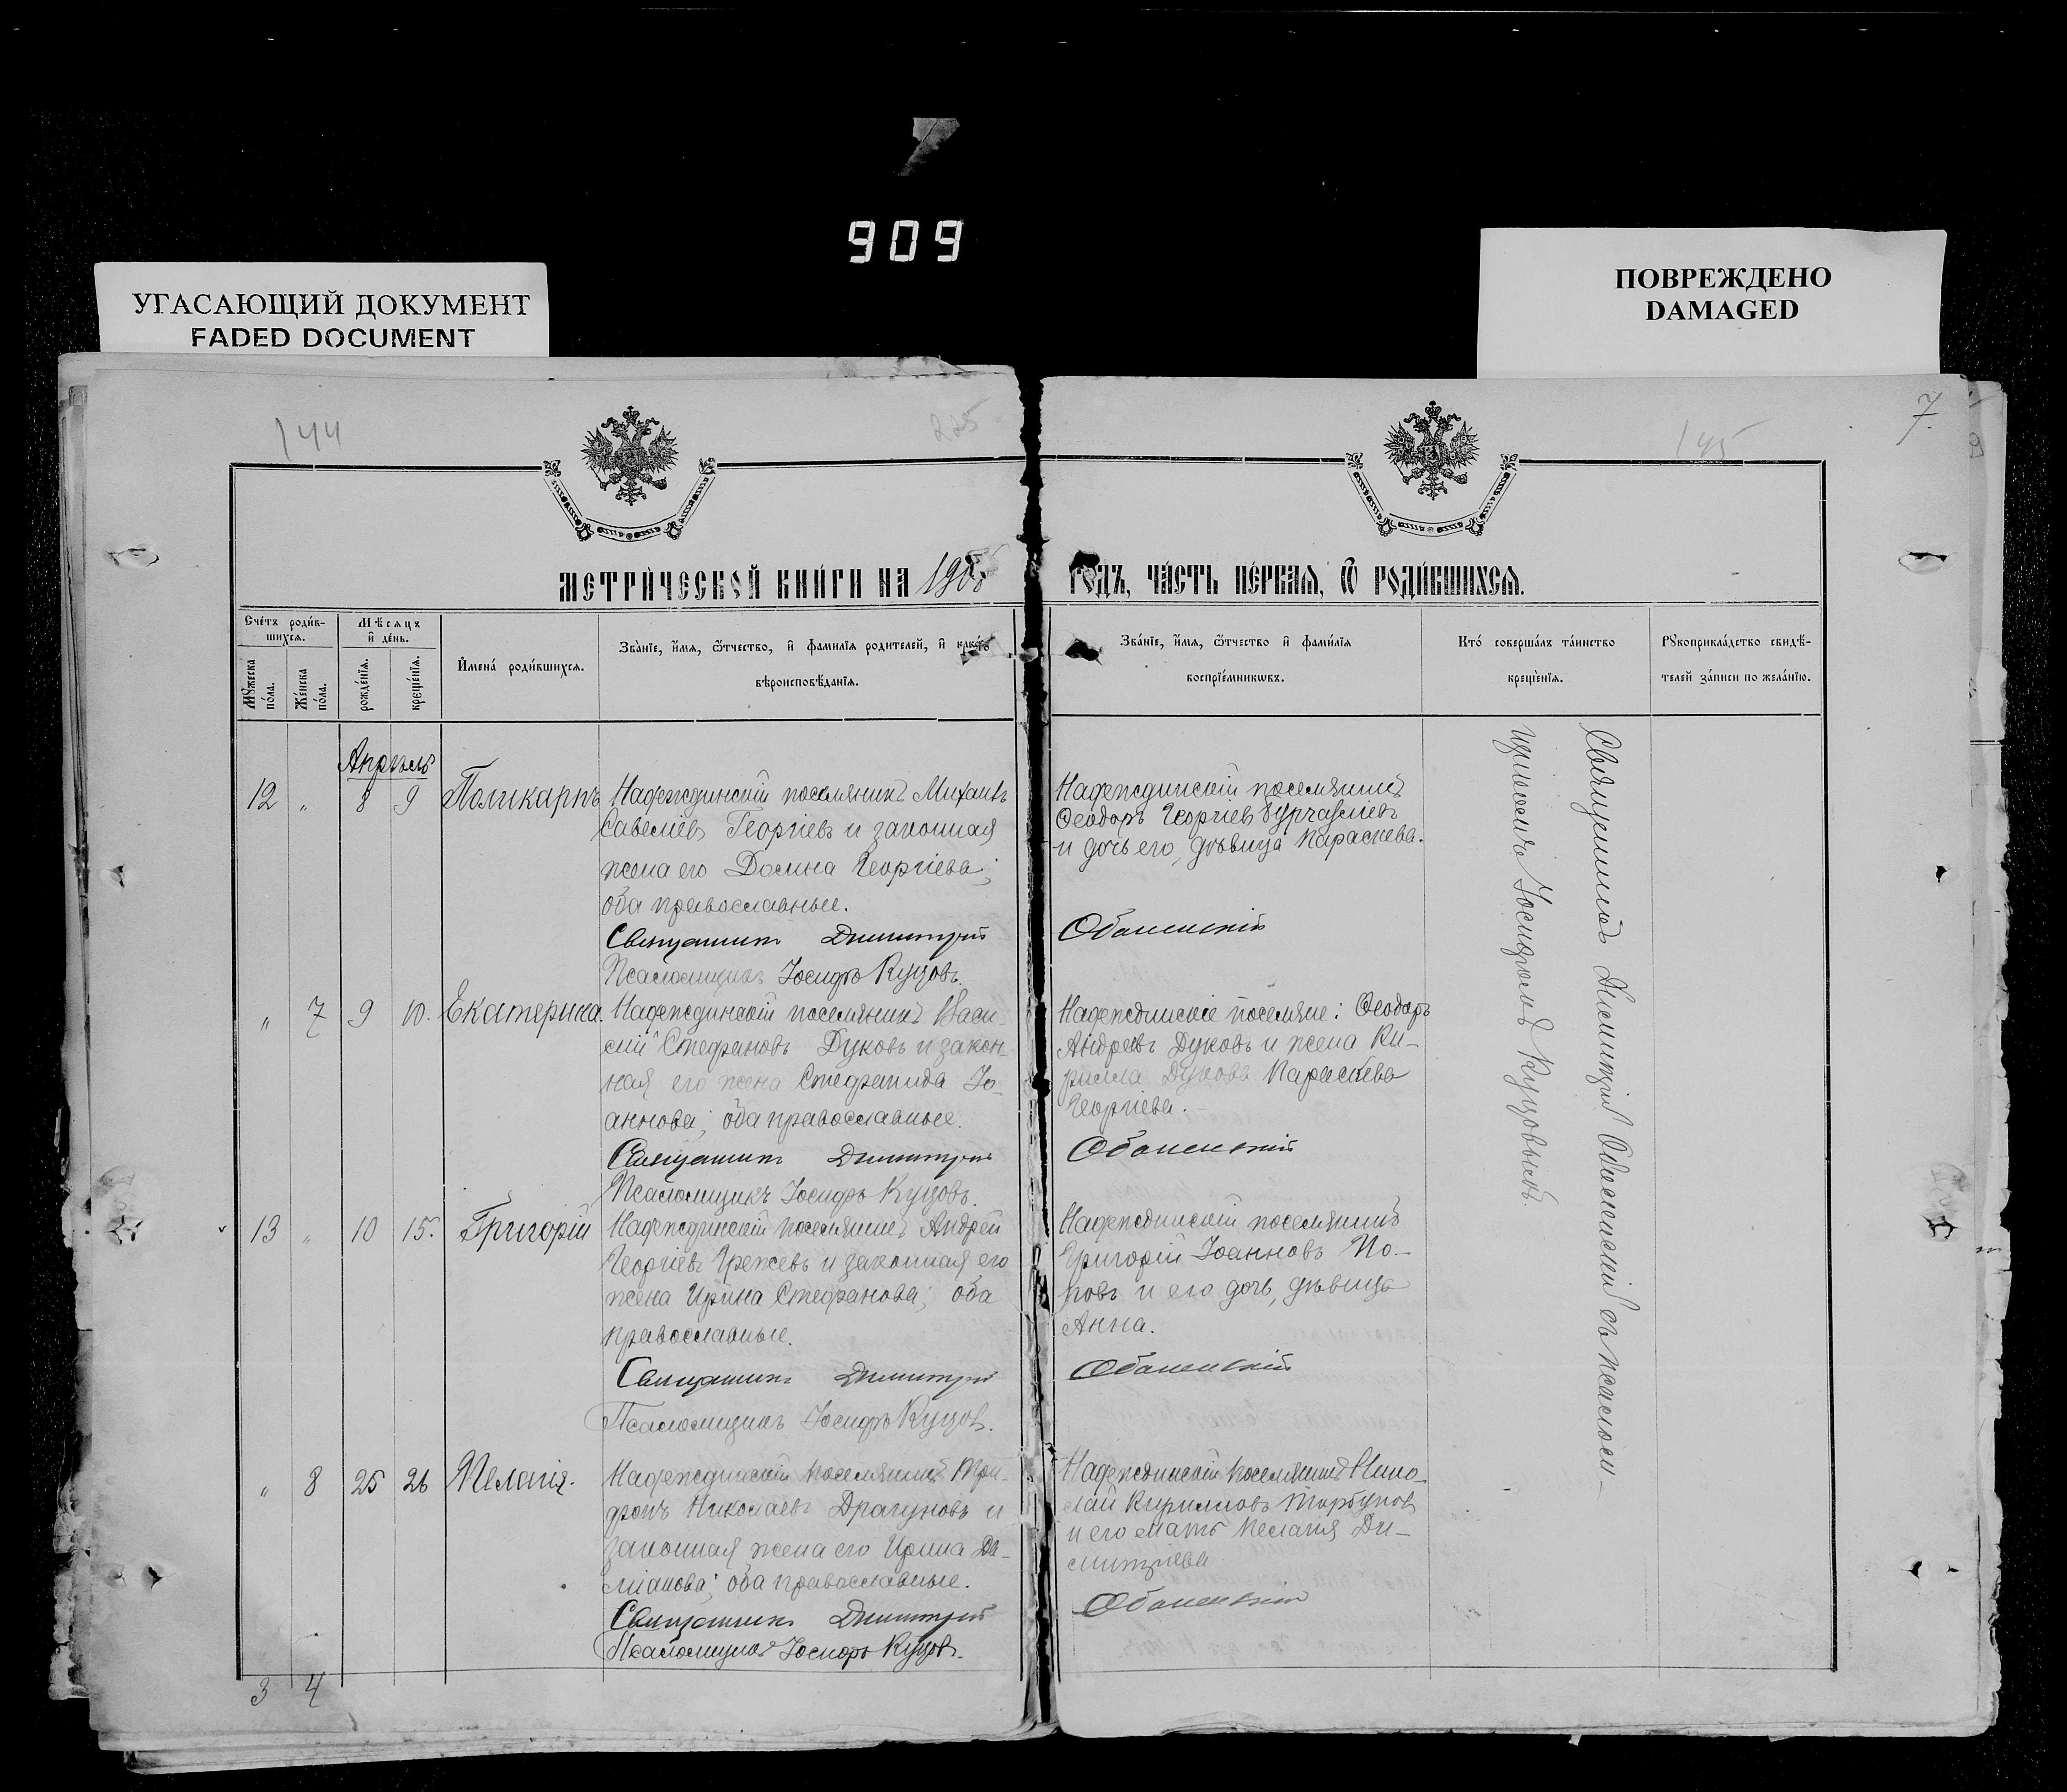 909
УГАСАЮЩИЙ ДОКУМЕНТ
FADED DOCUMENT
ПОВРЕЖДЕНО
DAMAGED
144
225
145
7.
МЕТРИ́ЧЕСКОЙ КНИ́ГИ НА 190
ГОДЪ, ЧА́СТЬ ПЕ́РВАѦ, Ѿ РОДИ́ВШИХСѦ.
Сче́тъ роди́в-
шихсѧ.
Мѣсѧцъ
и де́нь.
Мꙋжеска
по́ла.
Же́нска
по́ла.
рожде́нїѧ.
креще́нїѧ.
Имена́ роди́вшихсѧ.
Зва́нїе, и́мѧ, ѻ́тчество, и фами́лїѧ роди́телей, и како́го
вѣроисповѣ́данїѧ.
Зва́нїе, и́мѧ, ѻ́тчество и фами́лїѧ
воспрїе́мникѡвъ.
Кто́ соверша́лъ та́инство
креще́нїѧ.
Рꙋкоприкла́дство свидѣ́-
телей за́писи по жела́нїю.
Апрѣль
12 „ 8 9 Поликарпъ
Надеждинскій поселянинъ Михаилъ
Савеліевъ Георгіевъ и законная
жена его Домна Георгіева;
оба православные.
Священникъ Димитрій
Псаломщикъ Іосифъ Куцовъ.
Надеждинскій поселянинъ
Ѳеодоръ Георгіевъ
и дочь его, дѣвица Параскева.
„ 7 9 10. Екатерина.
Надеждинскій поселянинъ Васи-
лій Стефановъ Дуковъ и закон-
ная его жена Стефанида Іо-
аннова; оба православные.
Священникъ Димитрій
Псаломщикъ Іосифъ Куцовъ.
Надеждинскіе поселяне: Ѳеодоръ
Андреевъ Дуковъ и жена Ки-
рилла Дукова Параскева
Георгіева.
13 „ 10 15. Григорій
Надеждинскій поселянинъ Андрей
Георгіевъ и законная его
жена Ирина Стефанова; оба
православные.
Священникъ Димитрій
Псаломщикъ Іосифъ Куцовъ.
Надеждинскій поселянинъ
Григорій Іоанновъ По-
повъ и его дочь, дѣвица
Анна.
„ 8 25 26 Пелагія.
Надеждинскій поселянинъ Три-
фонъ Николаевъ Драгуновъ и
законная жена его Ирина Да-
міанова; оба православные.
Священникъ Димитрій
Псаломщикъ Іосифъ Куцовъ.
Надеждинскій поселянинъ Нико-
лай Кирилловъ
и его мать Пелагія Ди-
митріева
Священникъ Димитрій съ псалом-
щикомъ Іосифомъ Куцовымъ.
3 4